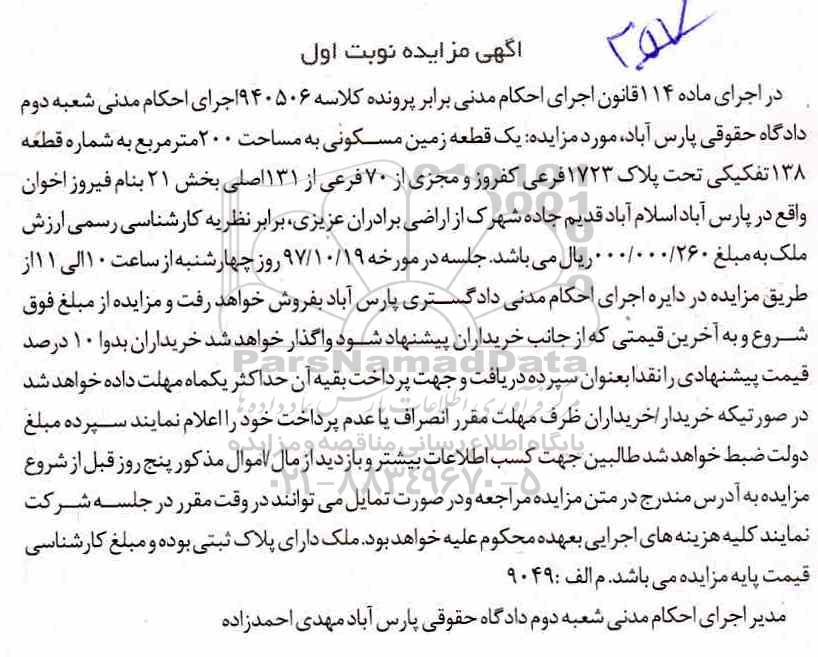 آگهی مزایده نوبت اول
در اجرای ماده ۱۱۴قانون اجرای احکام مدنی برابر پرونده کلاسه ۹۴۰۵۰۶اجرای احکام مدنی شعبه دوم
دادگاه حقوقی پارس آباد، مورد مزایده: یک قطعه زمین مسکونی به مساحت ۲۰۰مترمربع به شماره قطعه
۱۳۸تفکیکی تحت پلاک ۱۷۲۳فرعی کفروز و مجزی از ۷۰فرعی از ۱۳۱اصلی بخش ۲۱ بنام فیروز اخوان
واقع در پارس آباد اسلام آباد قدیم جاده شهرک از اراضی برادران عزیزی، برابر نظریه کارشناسی رسمی ارزش
ملک به مبلغ ۲۶۰/۰۰۰/۰۰۰ریال می باشد. جلسه در مورخه ۹۷/۱۰/۱۹ روز چهارشنبه از ساعت ۱۰الی ۱۱از
طریق مزایده در دایره اجرای احکام مدنی دادگستری پارس آباد بفروش خواهد رفت و مزایده از مبلغ فوق
شروع و به آخرین قیمتی که از جانب خریداران پیشنهاد شود واگذار خواهد شد خریداران بدوا ۱۰ درصد
قیمت پیشنهادی را نقدا بعنوان سپرده دریافت و جهت پرداخت بقیه آن حداکثر یکماه مهلت داده خواهد شد
در صورتیکه خریدار/خریداران ظرف مهلت مقرر انصراف یا عدم پرداخت خود را اعلام نمایند سپرده مبلغ
دولت ضبط خواهد شد طالبین جهت کسب اطلاعات بیشتر و بازدید از مال/اموال مذکور پنج روز قبل از شروع
مزایده به آدرس مندرج در متن مزایده مراجعه ودر صورت تمایل می توانند در وقت مقرر در جلسه شرکت
نمایند کلیه هزینه های اجرایی بعهده محکوم علیه خواهد بود. ملک دارای پلاک ثبتی بوده و مبلغ کارشناسی
قیمت پایه مزایده می باشد. م الف :۹۰۴۹
مدیر اجرای احکام مدنی شعبه دوم دادگاه حقوقی پارس آباد مهدی احمدزاده
ParsNamadData
پایگاه اطلاع رسانی مناقصه و مزایده
۰۲۱-۸۸۳۴۹۶۷۰-۵